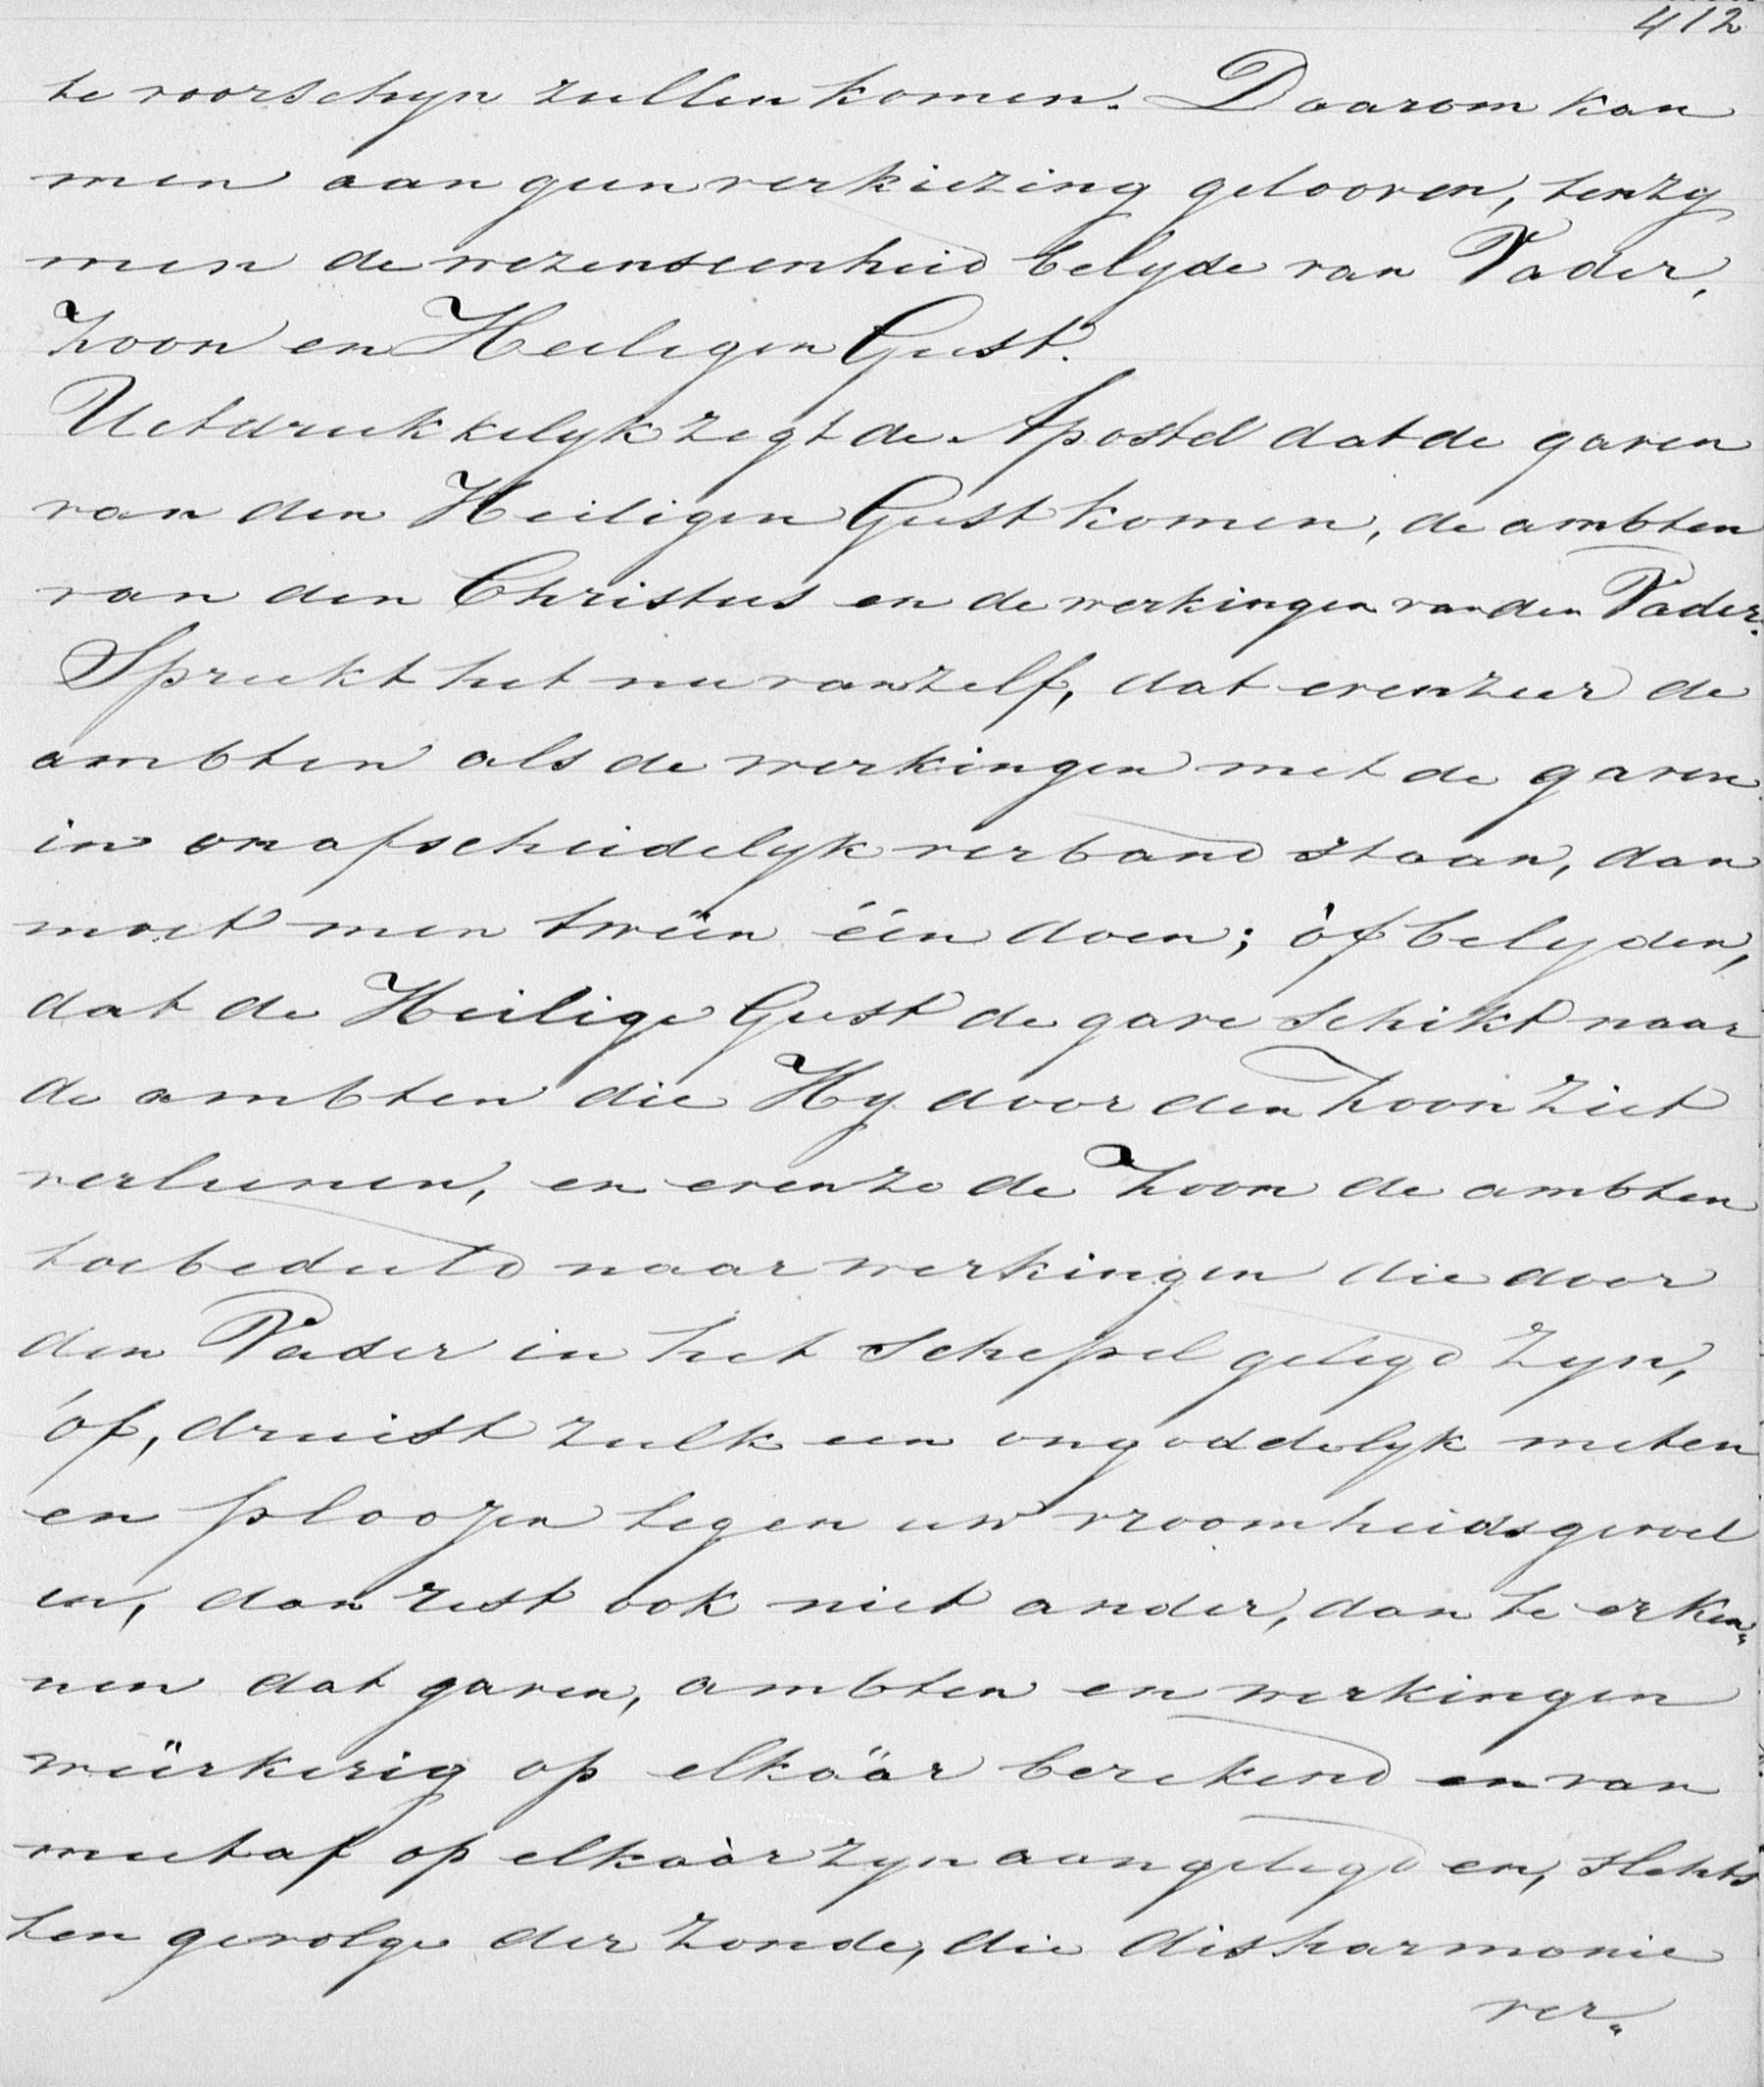 412
te voorschyn zullen komen. Daarom kan
men aan geen verkiezing gelooven, tenzy
men de wezenseenheid belyde van Vader,
Zoon en Heiligen Geest.
Uitdrukkelyk zegt de Apostel dat de gaven
van den Heiligen Geest komen, de ambten
van den Christus en de werkingen van den Vader.
Spreekt het nu vanzelf, dat evenzeer de
ambten als de werkingen met de gaven
in onafscheidelyk verband staan, dan
moet men tweeën één doen; òf belyden,
dat de Heilige Geest de gave schikt naar
de ambten die Hy door den Zoon ziet
verleenen, en evenzo de Zoon de ambten
toebedeeld naar werkingen die door
den Vader in het schepsel gelegd zyn,
óf, druist zulk een ongoddelyk meten
en plooijen tegen uw vroomheidsgevoel
in, dan rest ook niet ander, dan te erken„
nen dat gaven, ambten en werkingen
weêrkerig op elkaâr berekend en van
meetaf op elkaàr zyn aangelegd en, slechts
ten gevolge der zonde, die disharmonie
ver„